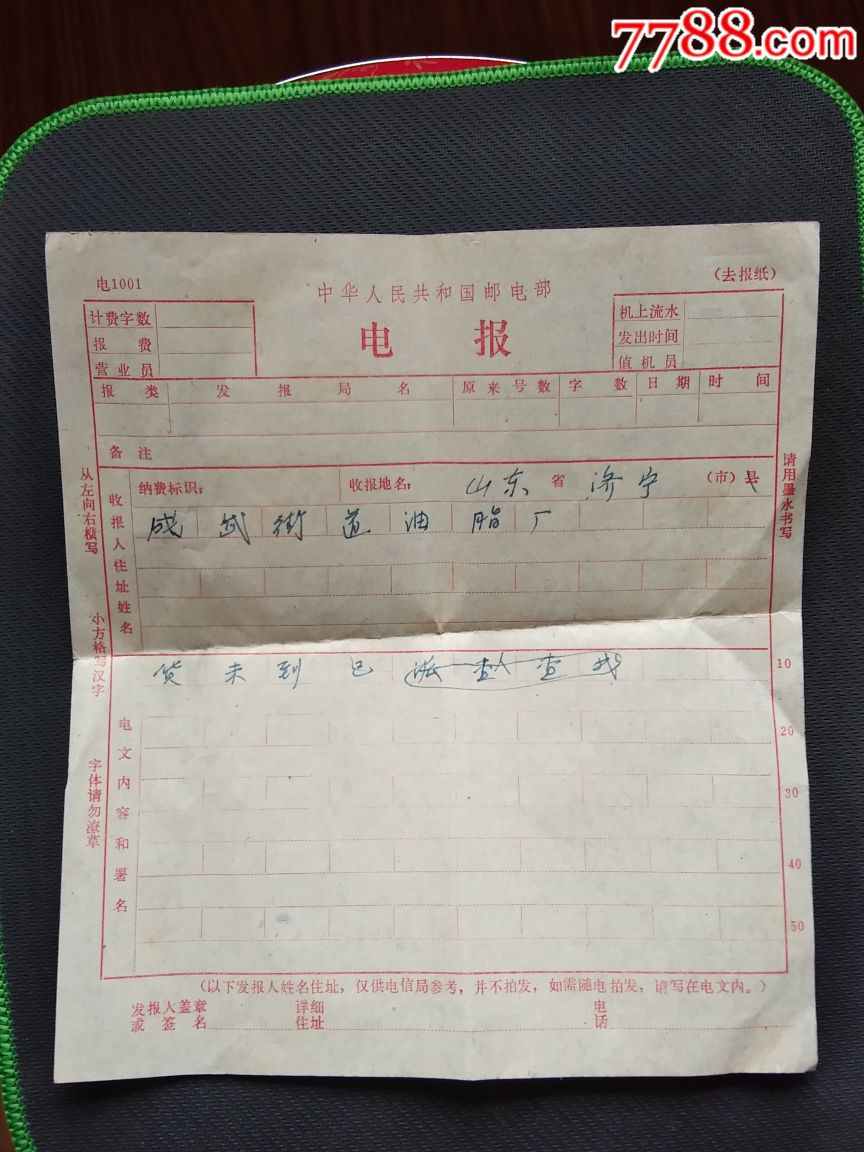 7788.com
电1001
(去报纸)
中华人民共和国邮电部
电 报
计费字数
报 费
营业员
机上流水
发出时间
值机员
报类 发报局名 原来号数 字数 日期 时间
备注
纳费标识: 收报地名: 山东 省 济宁 (市)县
收报人住址姓名
成武街道油脂厂
货未到已派人查找
电文内容和署名
10
20
30
40
50
从左向右横写 小方格写汉字 字体请勿潦草
请用墨水书写
(以下发报人姓名住址,仅供电信局参考,并不拍发,如需随电拍发,请写在电文内。)
发报人盖章 详细 电
或签名 住址 话